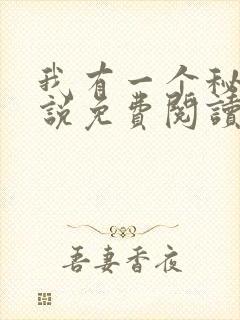 我有一个秘
說免費閱讀
吾妻香夜